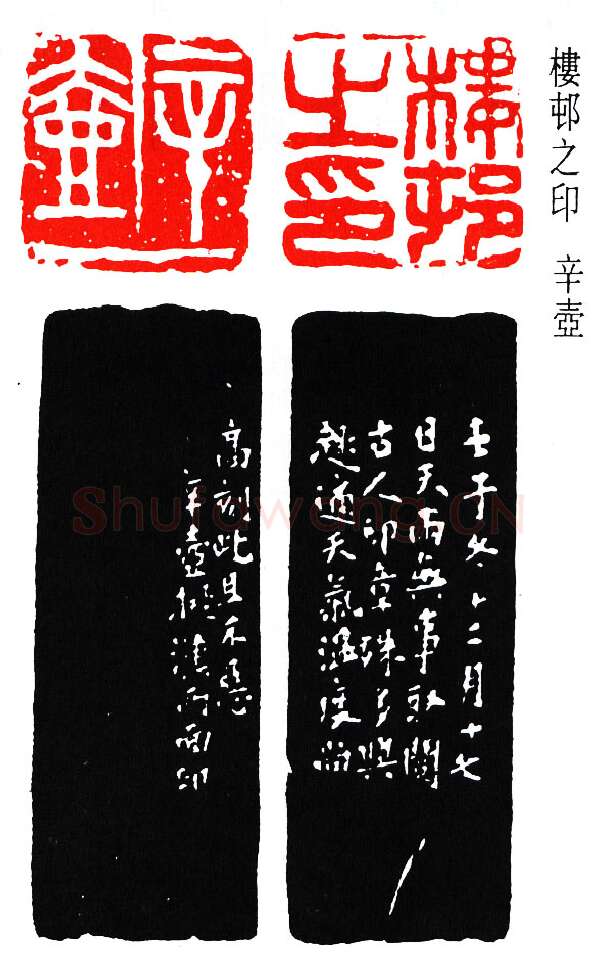 樓邨之印 辛壺
樓邨
之印
辛
壺
壬子冬十二月十七
日天雨無事取閱
古人印章殊多興
趣適天氣溫度尚
高刻此且不惡
辛壺擬漢兩面印
Shufawang.CN